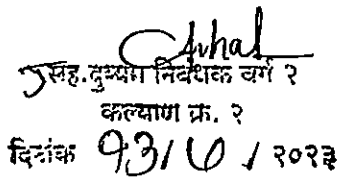 सह. दुय्यम निबंधक वर्ग २
कल्याण क्र. २
दिनांक 13/6/२०२३